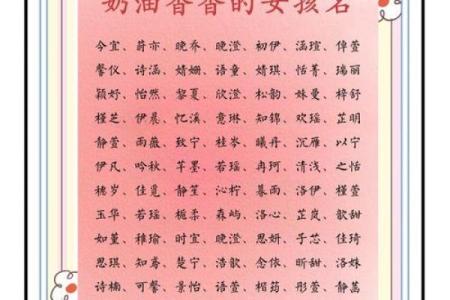 奶油香香的女孩名
今宜、莳亦、晚乔、晚滢、初伊、涵瑄、倬萱
馨仪、诗涵、婧姗、语童、婧琪、恬菁、瑞丽
颖妤、怡然、黎夏、欣滢、松韵、姝曼、梓舒
槿芝、伊晨、忆溪、意琳、知锦、欢瑶、芷明
静萱、雨薇、致宁、桂岑、曦丹、沉雁、以宁
伊凡、吟秋、芊墨、若瑶、冉珂、清浅、之恬
穗岁、佳觅、静笙、沁柠、暮雨、洛伊、槿萱
玉华、若瑶、栀柔、森屿、洛心、芷岚、歆甜
如堇、稚瑜、时宜、晚滢、思妍、于芯、佳琦
思琪、知鸢、楚宁、浩歆、念依、昕甜、洛姝
诗楠、可馨、景怡、语萱、楣筠、彤萱、静菡